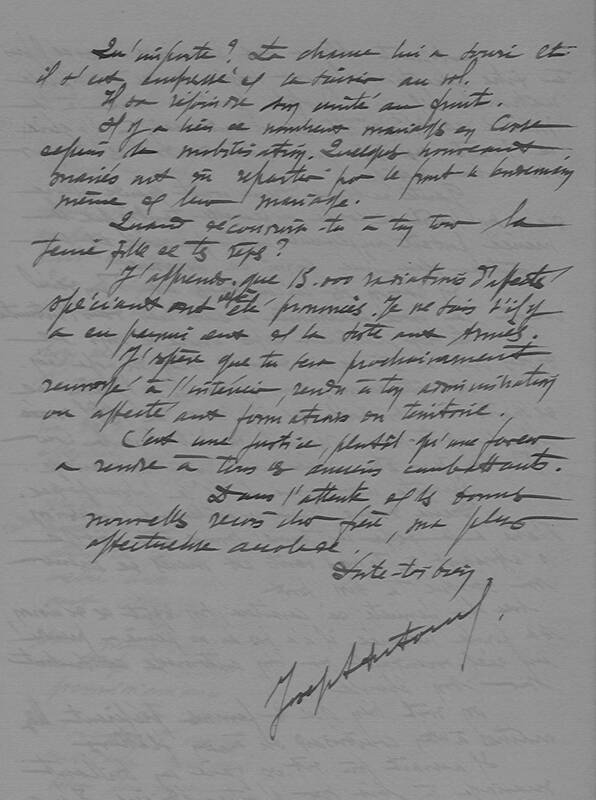 Qu'importe? La chance lui a souri et
il s'est empressé de la saisir au vol.
Il va rejoindre son unité au front.
Il y a bien de nombreux mariages en Corse
depuis la mobilisation. Quelques nouveaux
mariés ont dû repartir pour le front le lendemain
même de leur mariage.
Quand découvriras-tu à ton tour la
jeune fille de tes rêves?
J'apprends que 15.000 radiations d'affectés
spéciaux ont été prononcées. Je ne sais s'il y
a eu parmi eux de la aux Armées.
J'espère que tu seras prochainement
renvoyé à l'intérieur, rendu à ton administration
ou affecté aux formations du territoire.
C'est une justice, plutôt qu'une faveur
à rendre à tous les anciens combattants.
Dans l'attente de tes bonnes
nouvelles reçois cher frère, ma plus
affectueuse accolade.
Porte-toi bien
Joseph Antoine